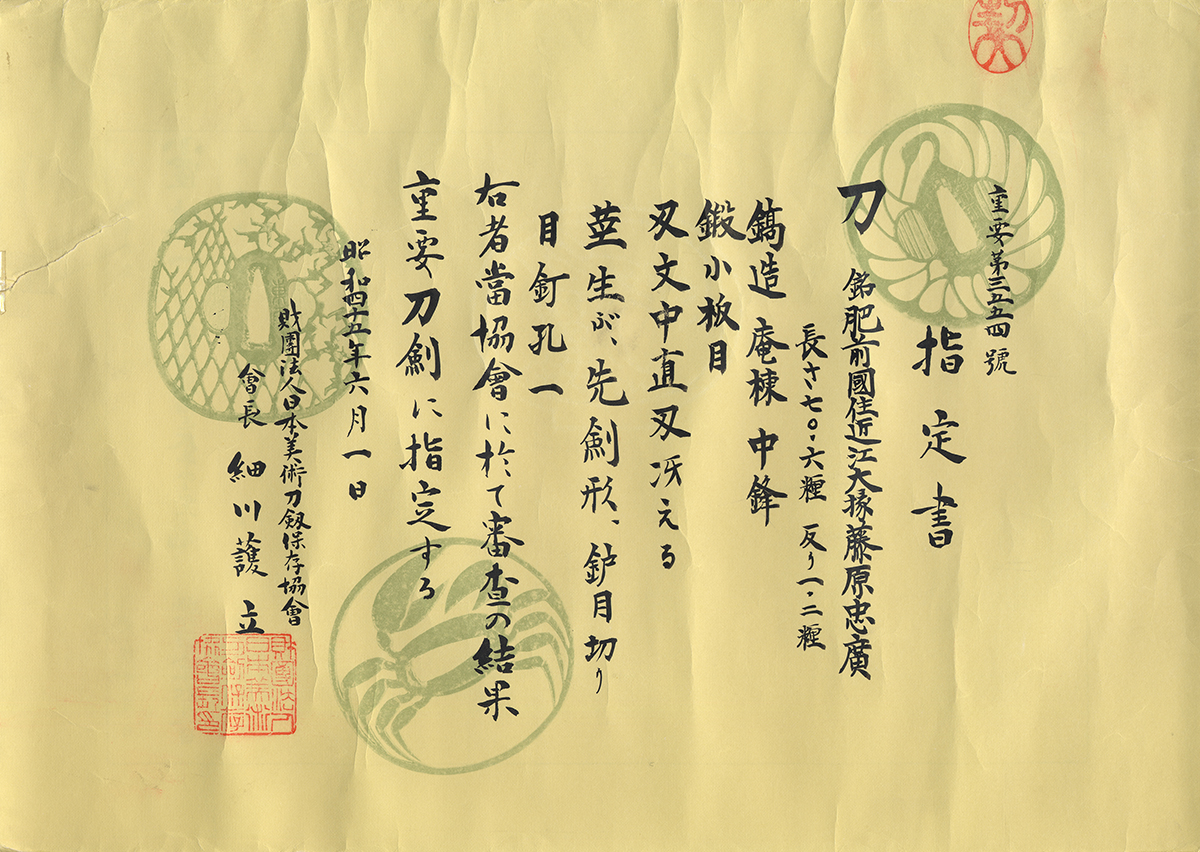 重要第三五五四號
指定書
刀 銘肥前國住近江大掾藤原忠廣
長さ七〇・六糎 反り一・二糎
鎬造 庵棟 中鋒
鍛小板目
刃文中直刃冴える
茎生ぶ、先剣形、鈩目切り
目釘孔一
右者當協會に於て審査の結果
重要刀剣に指定する
昭和四十五年六月一日
財團法人日本美術刀剱保存協會
會長 細川護立